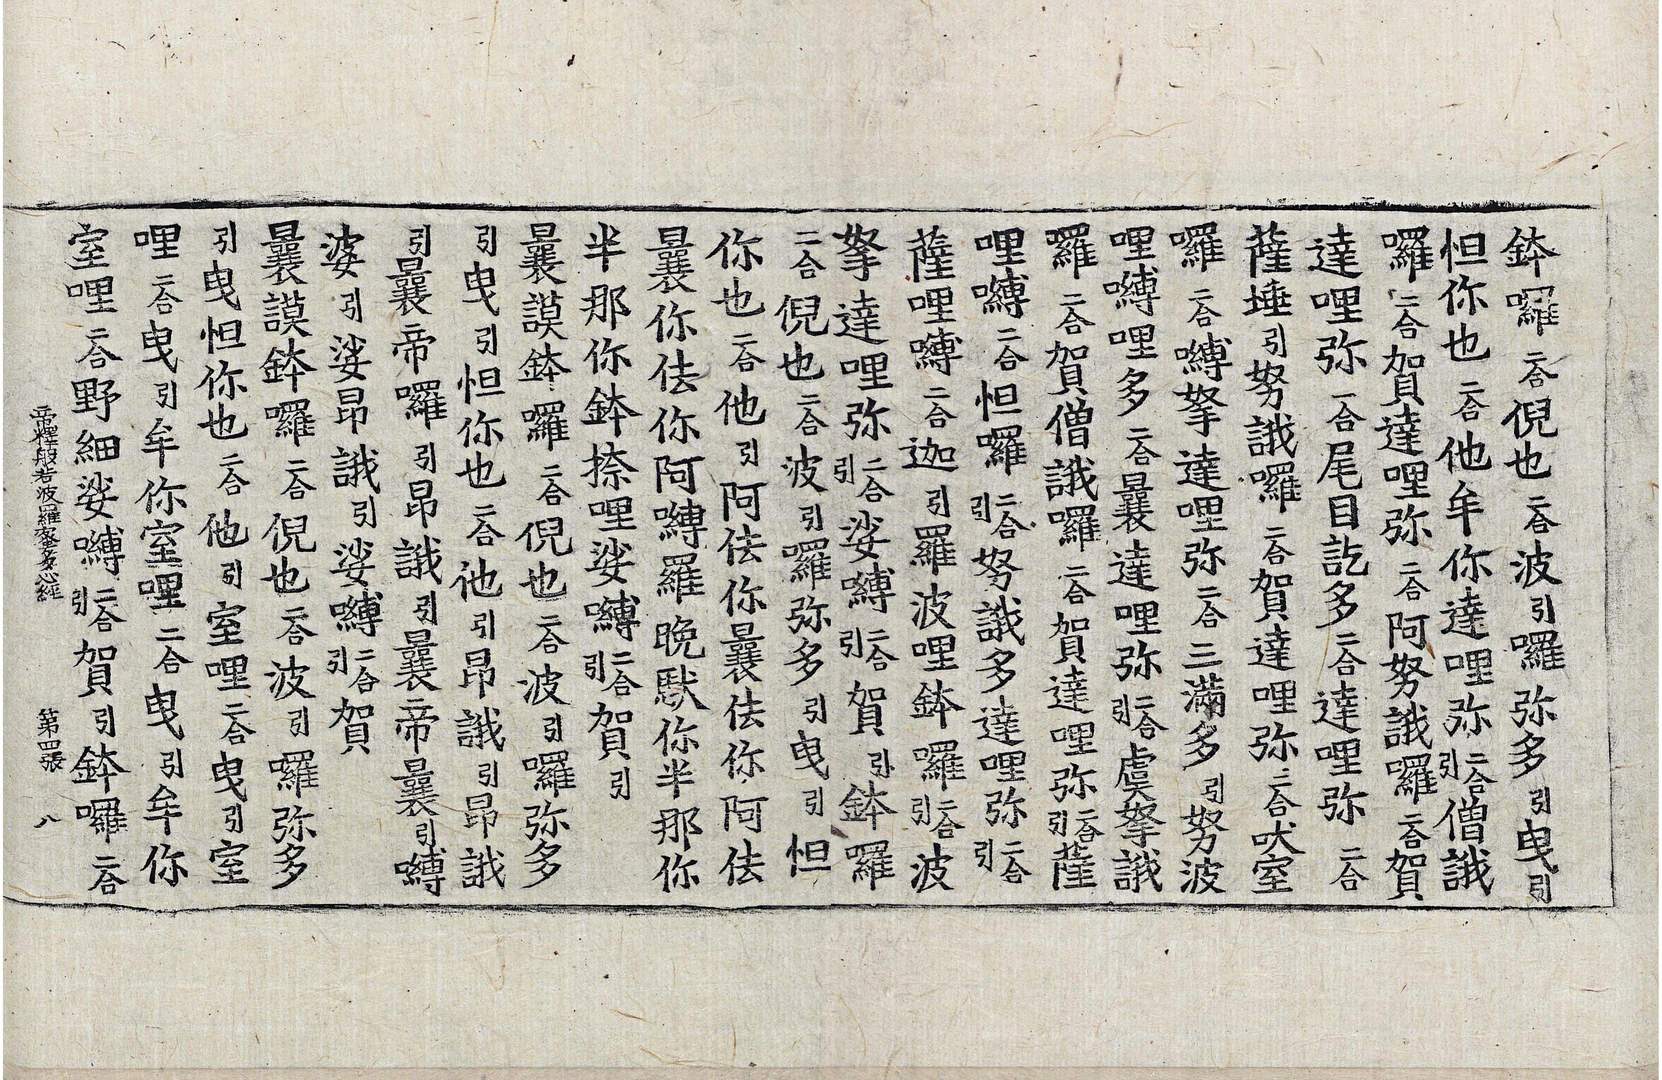 鉢囉二合倪也二合波引囉弥多引曳引
怛你也二合他牟你達哩弥二合引僧誐
囉二合賀達哩弥二合阿努誐囉二合賀
達哩弥二合尾目訖多二合達哩弥二合
薩埵引努誐囉二合賀達哩弥二合吠室
囉二合嚩拏達哩弥二合三滿多引努波
哩嚩哩多二合曩達哩弥二合引虞拏誐
囉二合賀僧誐囉二合賀達哩弥二合引薩
哩嚩二合怛囉二合引努誐多達哩弥二合引
薩哩嚩二合迦引羅波哩鉢囉二合引波
拏達哩弥二合引娑嚩二合引賀引鉢囉
二合倪也二合波引囉弥多引曳引怛
你也二合他引阿佉你曩佉你阿佉
曩你佉你阿嚩羅晩馱你半那你
半那你鉢捺哩娑嚩二合引賀引
曩謨鉢囉二合倪也二合波引囉弥多
引曳引怛你也二合他引昂誐引昂誐
引曩帝囉引昂誐引曩帝曩引嚩
婆引娑昂誐引娑嚩二合引賀
曩謨鉢囉二合倪也二合波引囉弥多
引曳怛你也二合他引室哩二合曳引室
哩二合曳引牟你室哩二合曳引牟你
室哩二合野細娑嚩二合引賀引鉢囉二合
帝釋般若波羅蜜多心經 第四張 八